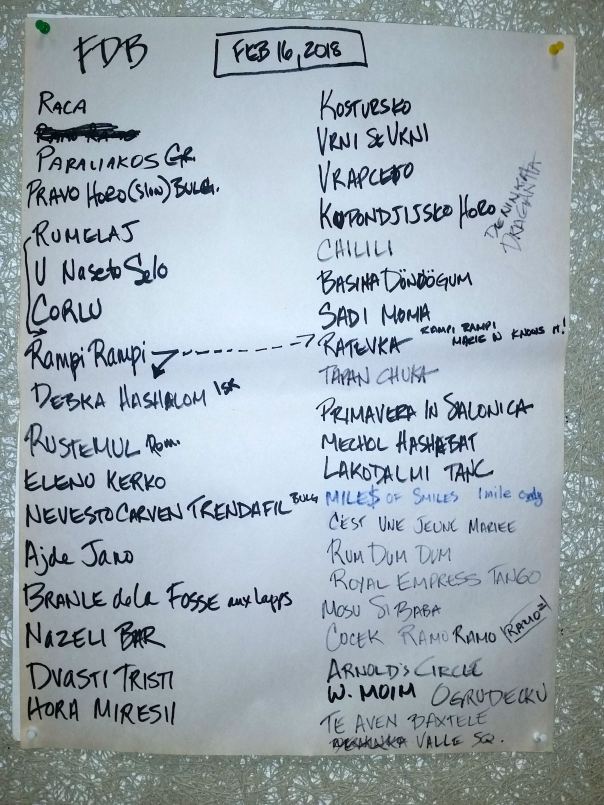 FDB
FEB 16, 2018
RACA
PARALIAKOS GR.
PRAVO HORO (slow) BULG.
RUMELAJ
U Naseto Selo
CORLU
Rampi Rampi
DEBKA HASHALOM ISR
RUSTEMUL Rom.
ELENO KERKO
NEVESTO CARVEN TRENDAFIL BULG
Ajde Jano
BRANLE de la FOSSE aux Lapps
NAZELI BAR
DVASTI TRISTI
HORA MIRESII
KOSTURSKO
VRNI SE VRNI
VRAPCETO
KOPONDJIJSKO HORO
DENINKA
DRAGANA
CHILILI
BASINA DÖNDÖGUM
SADI MOMA
RATEVKA RAMPI RAMPI
MARIE N KNOWS it!
TAPAN CHUKA
PRIMAVERA IN SALONICA
MECHOL HASHABAT
LAKODALMI TANC
MILE$ OF SMILES 1 mile only
C'EST UNE JEUNE MARIEE
RUM DUM DUM
ROYAL EMPRESS TANGO
MOSU SI BABA
COCEK RAMO RAMO
ARNOLD'S CIRCLE
W. MOIM OGRUDECKU
TE AVEN BAXTELE
DENINKA VALLE SQ.